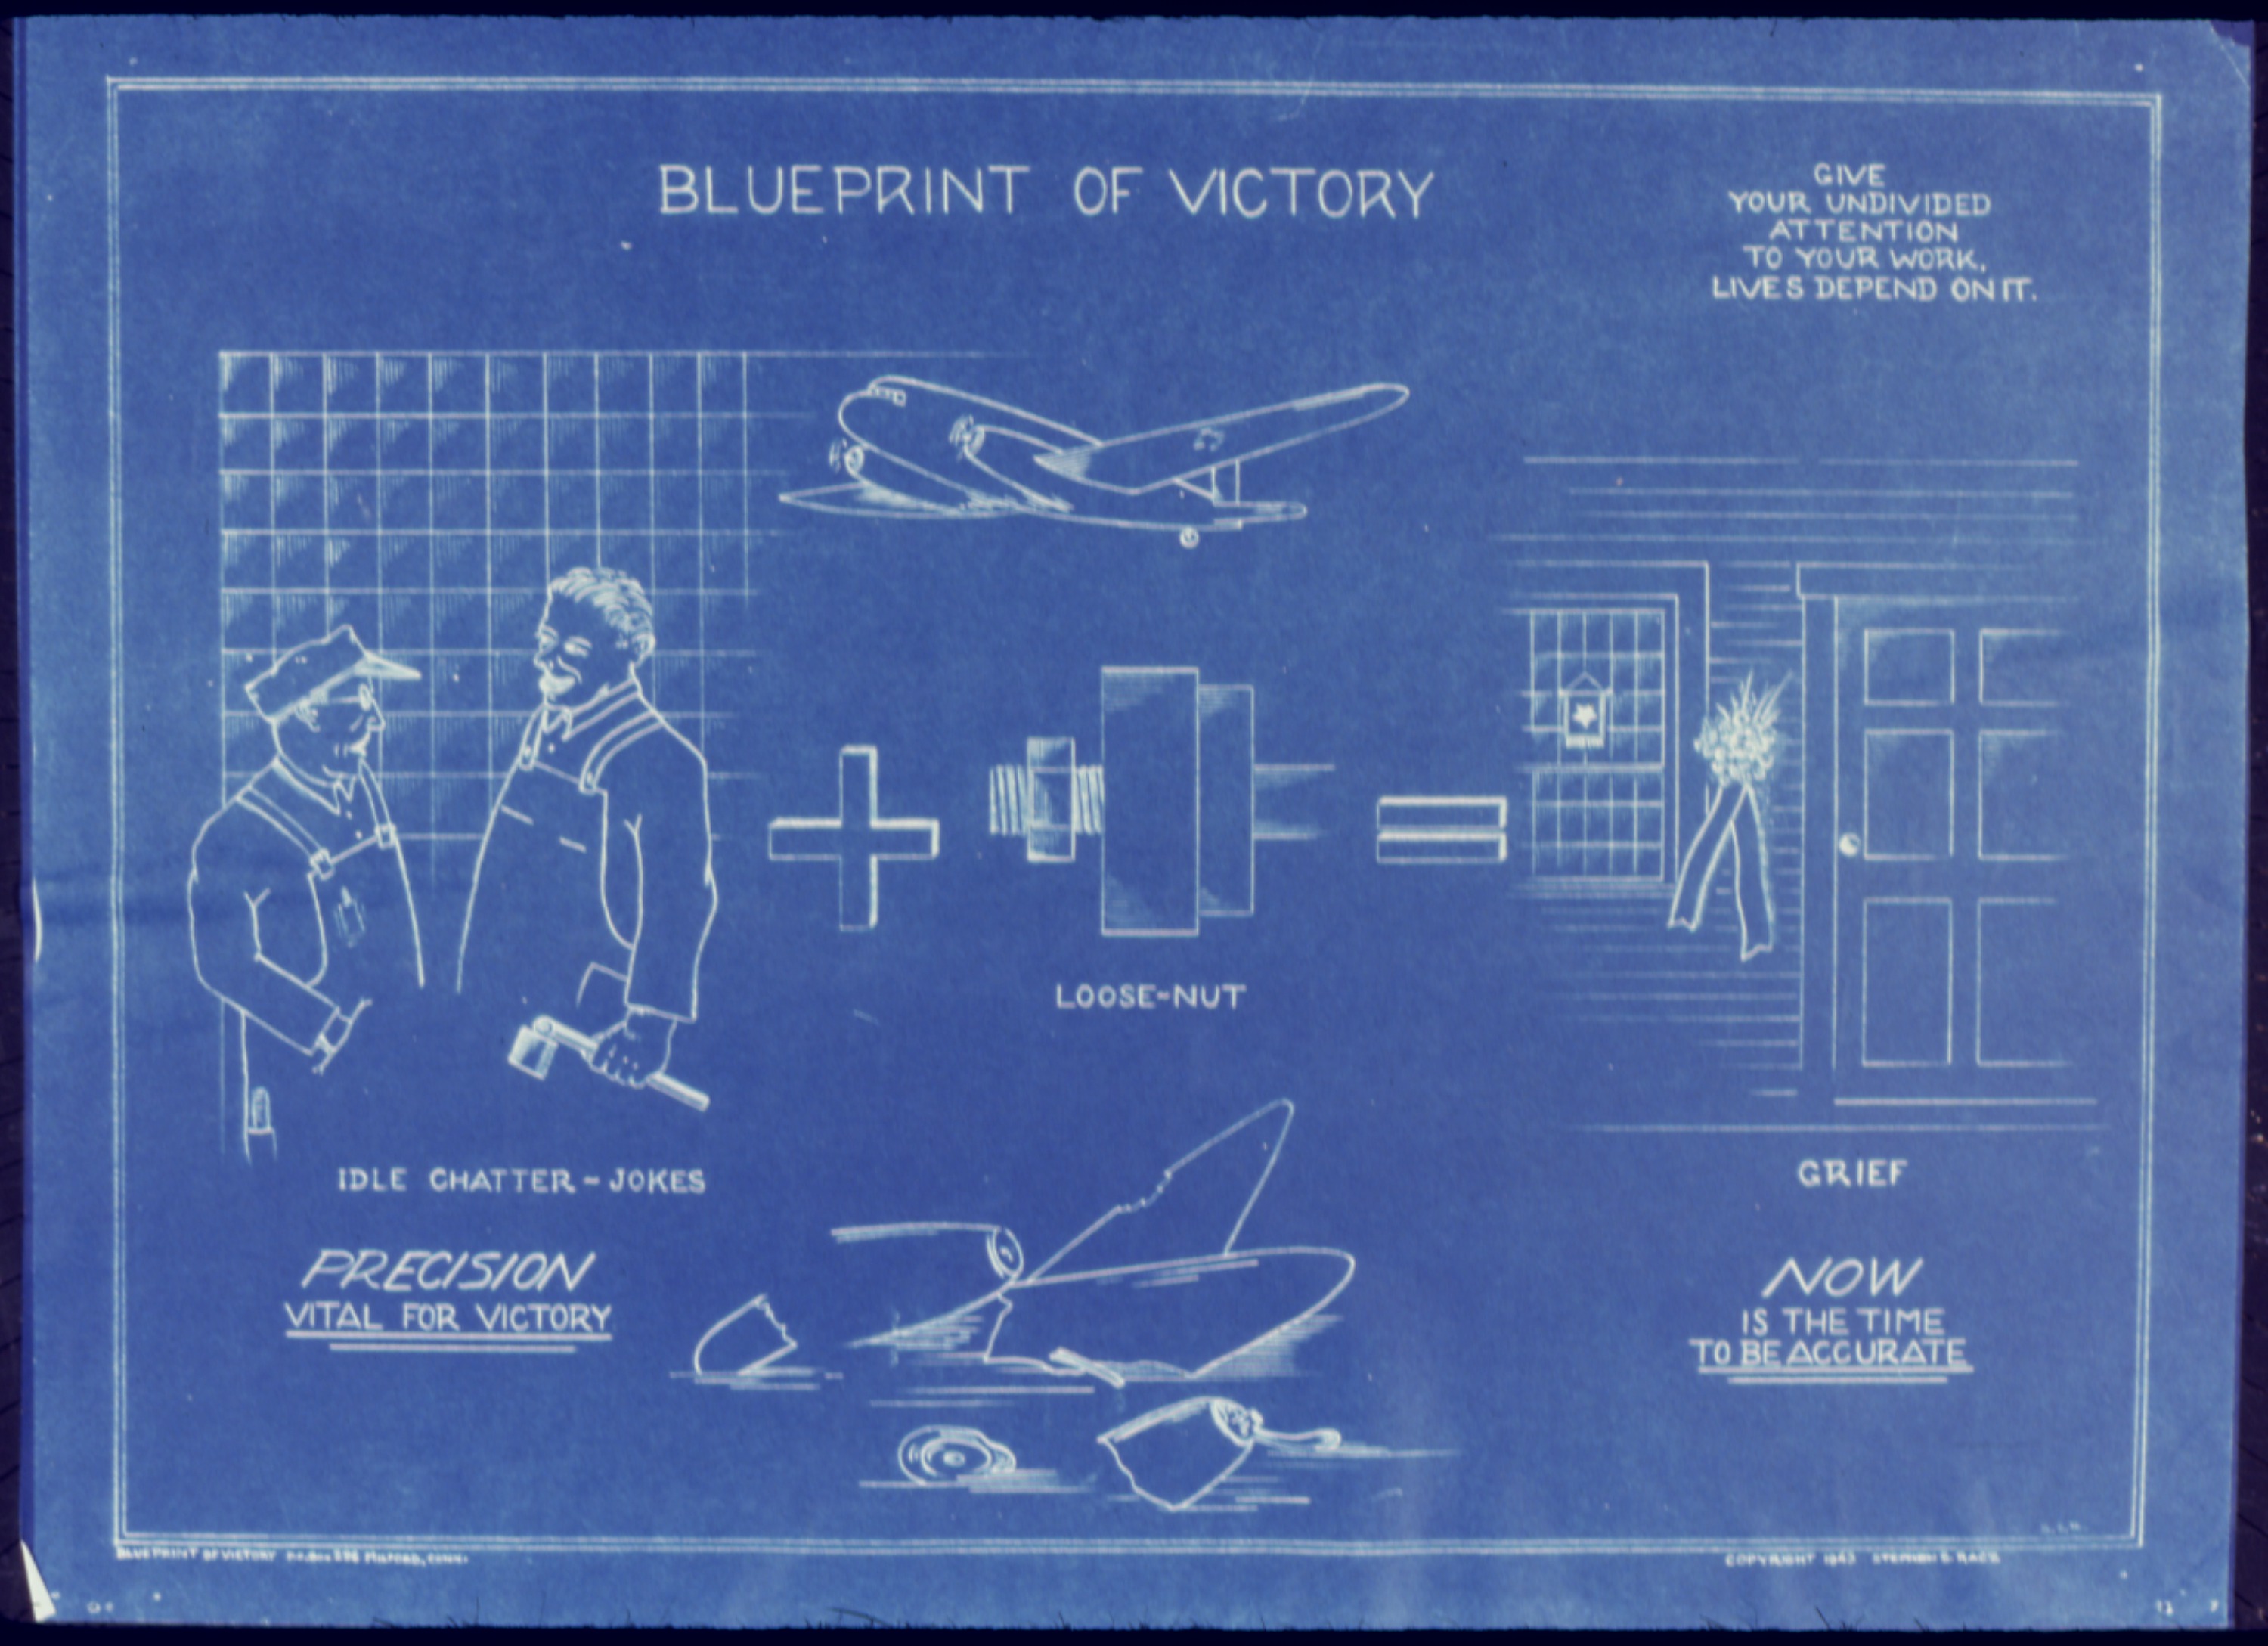 BLUEPRINT OF VICTORY
GIVE
YOUR UNDIVIDED
ATTENTION
TO YOUR WORK,
LIVES DEPEND ON IT.
LOOSE-NUT
IDLE CHATTER-JOKES
GRIEF
PRECISION
VITAL FOR VICTORY
NOW
IS THE TIME
TO BE ACCURATE
BLUEPRINT OF VICTORY P.O. BOX MILFORD, CONN.
COPYRIGHT 1943 STEPHEN